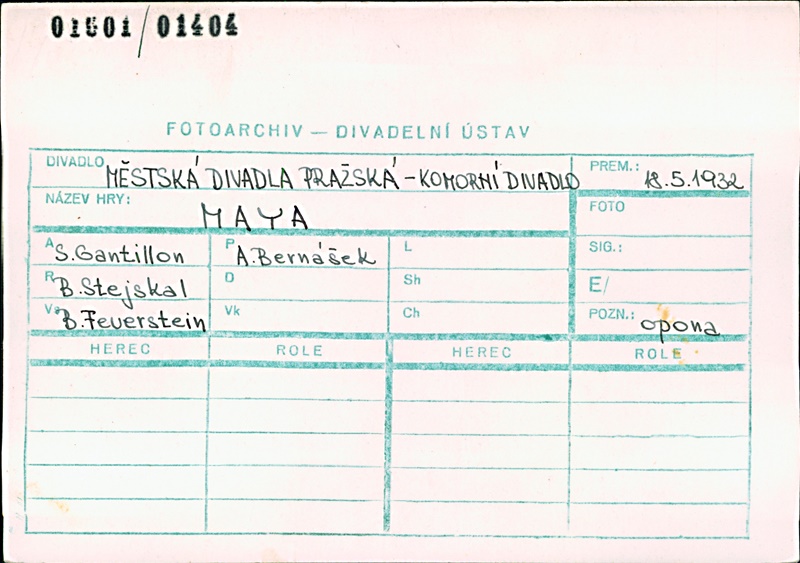 01501/01404
FOTOARCHIV — DIVADELNÍ ÚSTAV
DIVADLO MĚSTSKÁ DIVADLA PRAŽSKÁ – KOMORNÍ DIVADLO PREM.: 18.5.1932
NÁZEV HRY: MAYA FOTO
A S. Gantillon P A. Bernášek L SIG.:
R B. Stejskal D Sh E/
Va B. Feuerstein Vk Ch POZN.: opona
HEREC ROLE HEREC ROLE